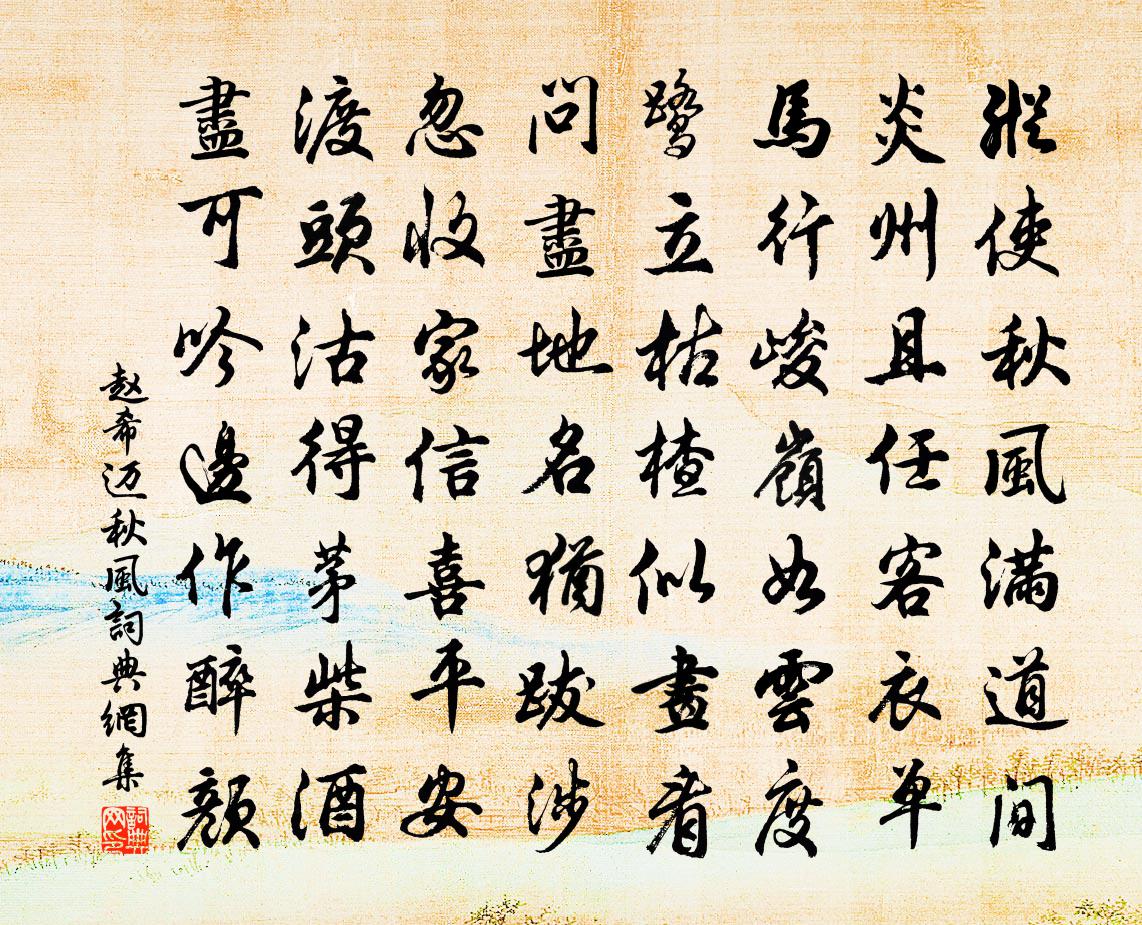 縱使秋風滿道間
炎州且任客衣单
馬行峻嶺如雲度
鹭立枯楂似畫看
問盡地名猶跋涉
忽收家信喜平安
渡頭沽得茅柴酒
盡可吟邊作醉顏
赵希迈秋風詞典網集
詞典网印